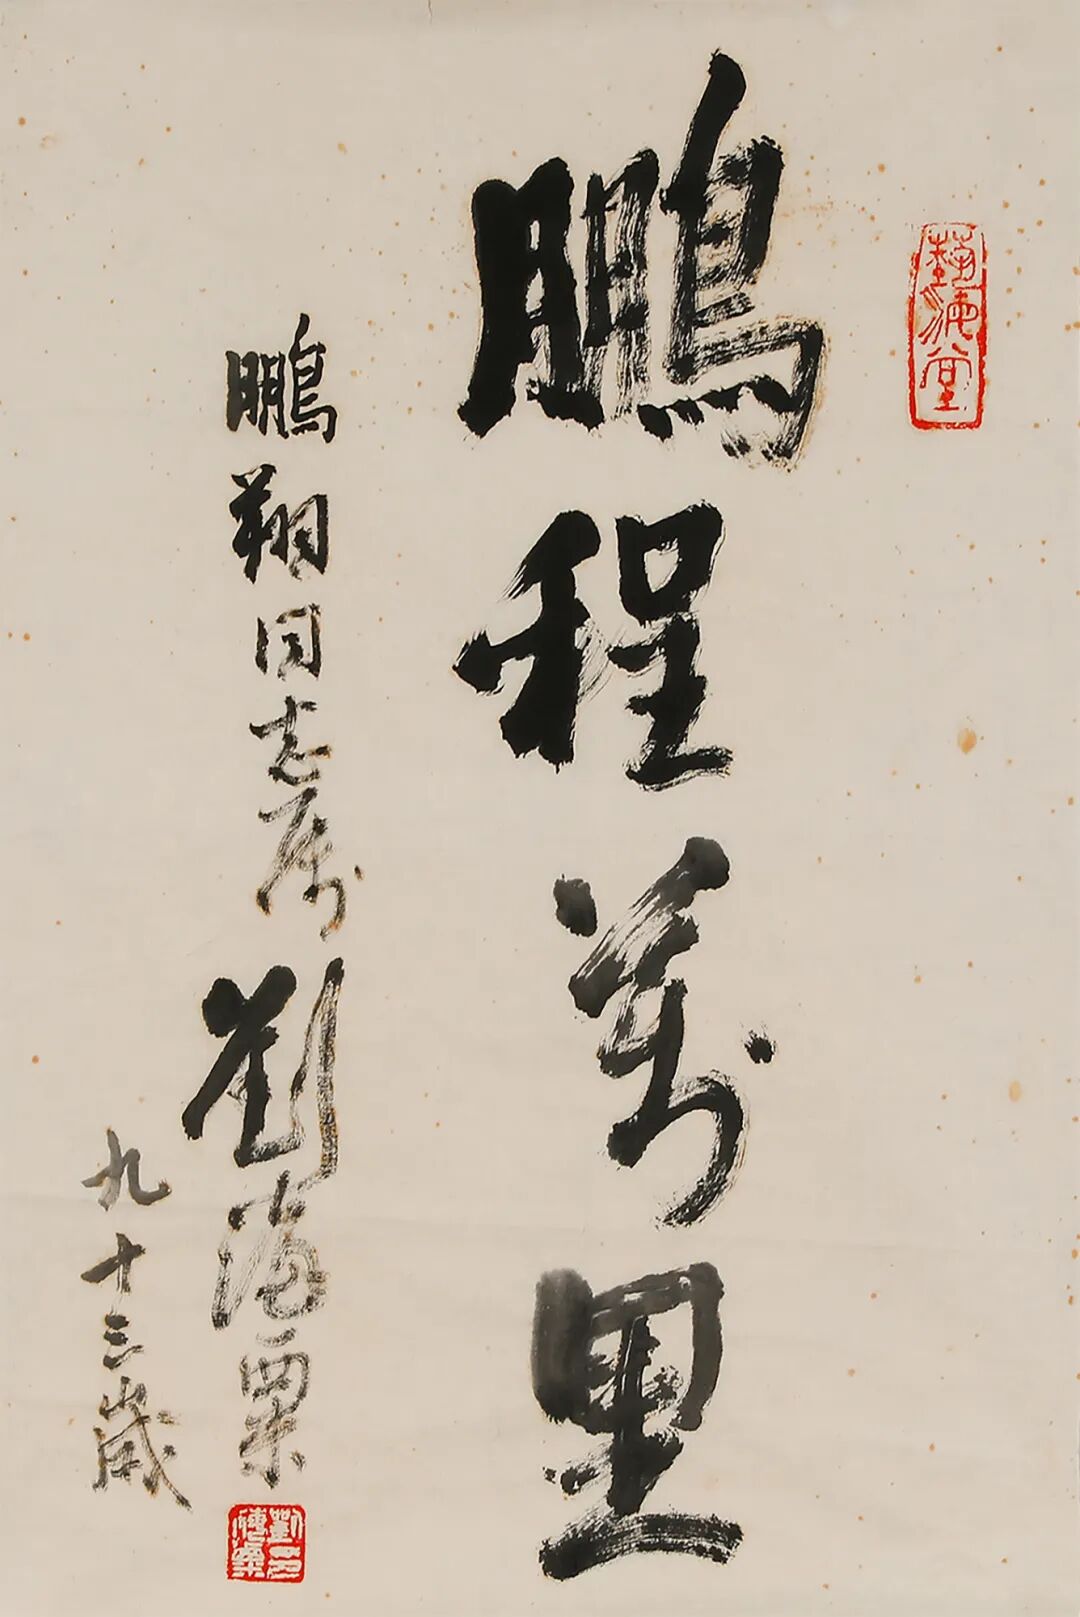 藝海堂
鵬程萬里
鵬翔同志屬
劉海粟
九十三歲
劉海粟印